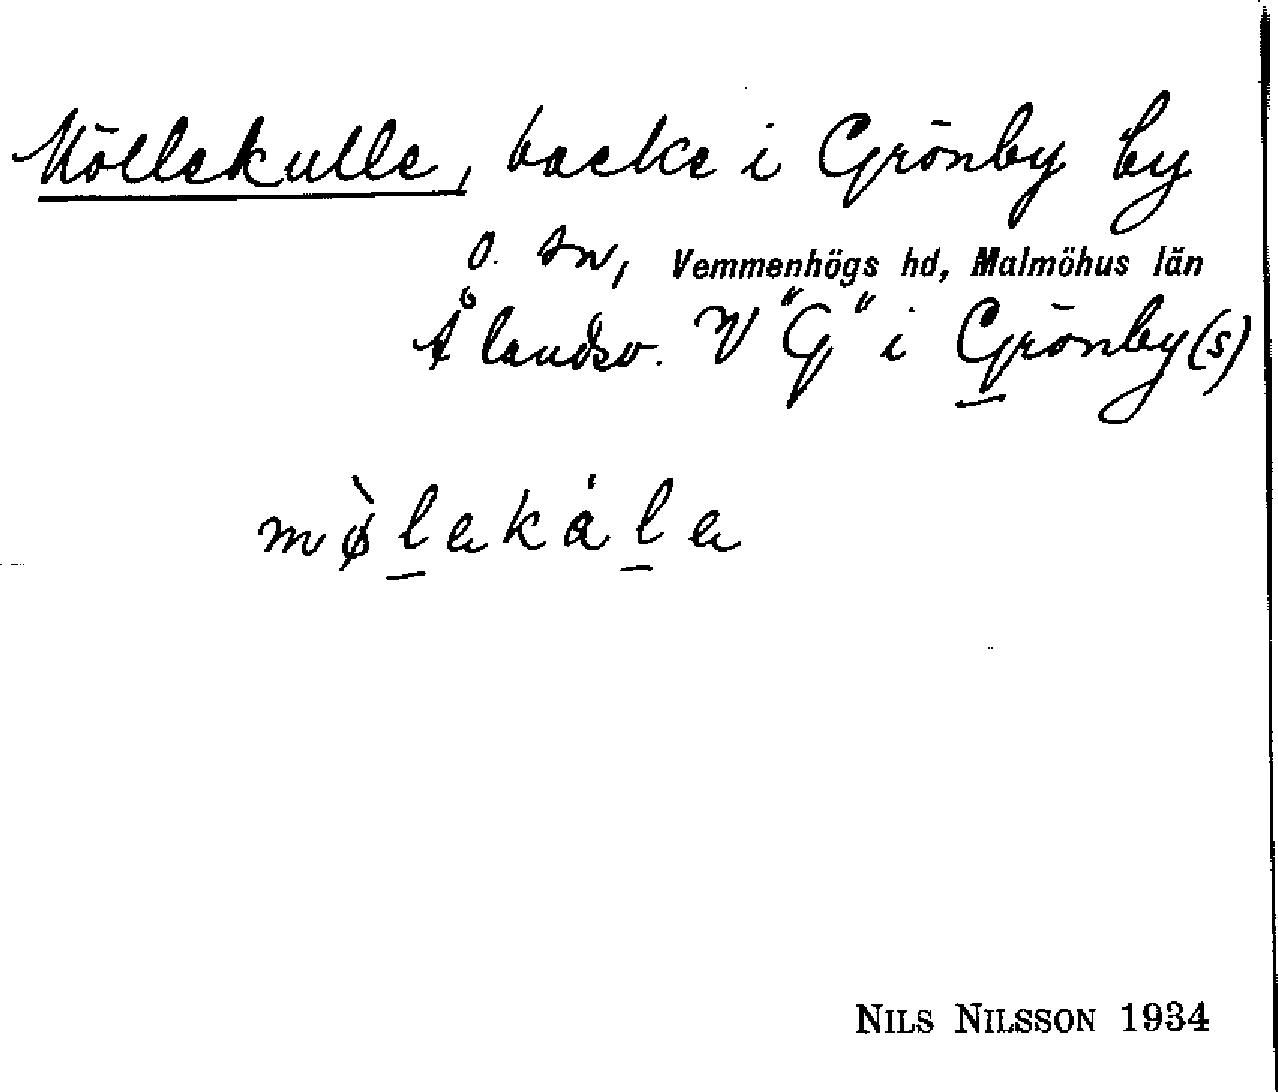 Möllekulle, backe i Grönby by
o. sn, Vemmenhögs hd, Malmöhus län
Å landsv. V "G" i Grönby(s)
mø̀lakála
NILS NILSSON 1934